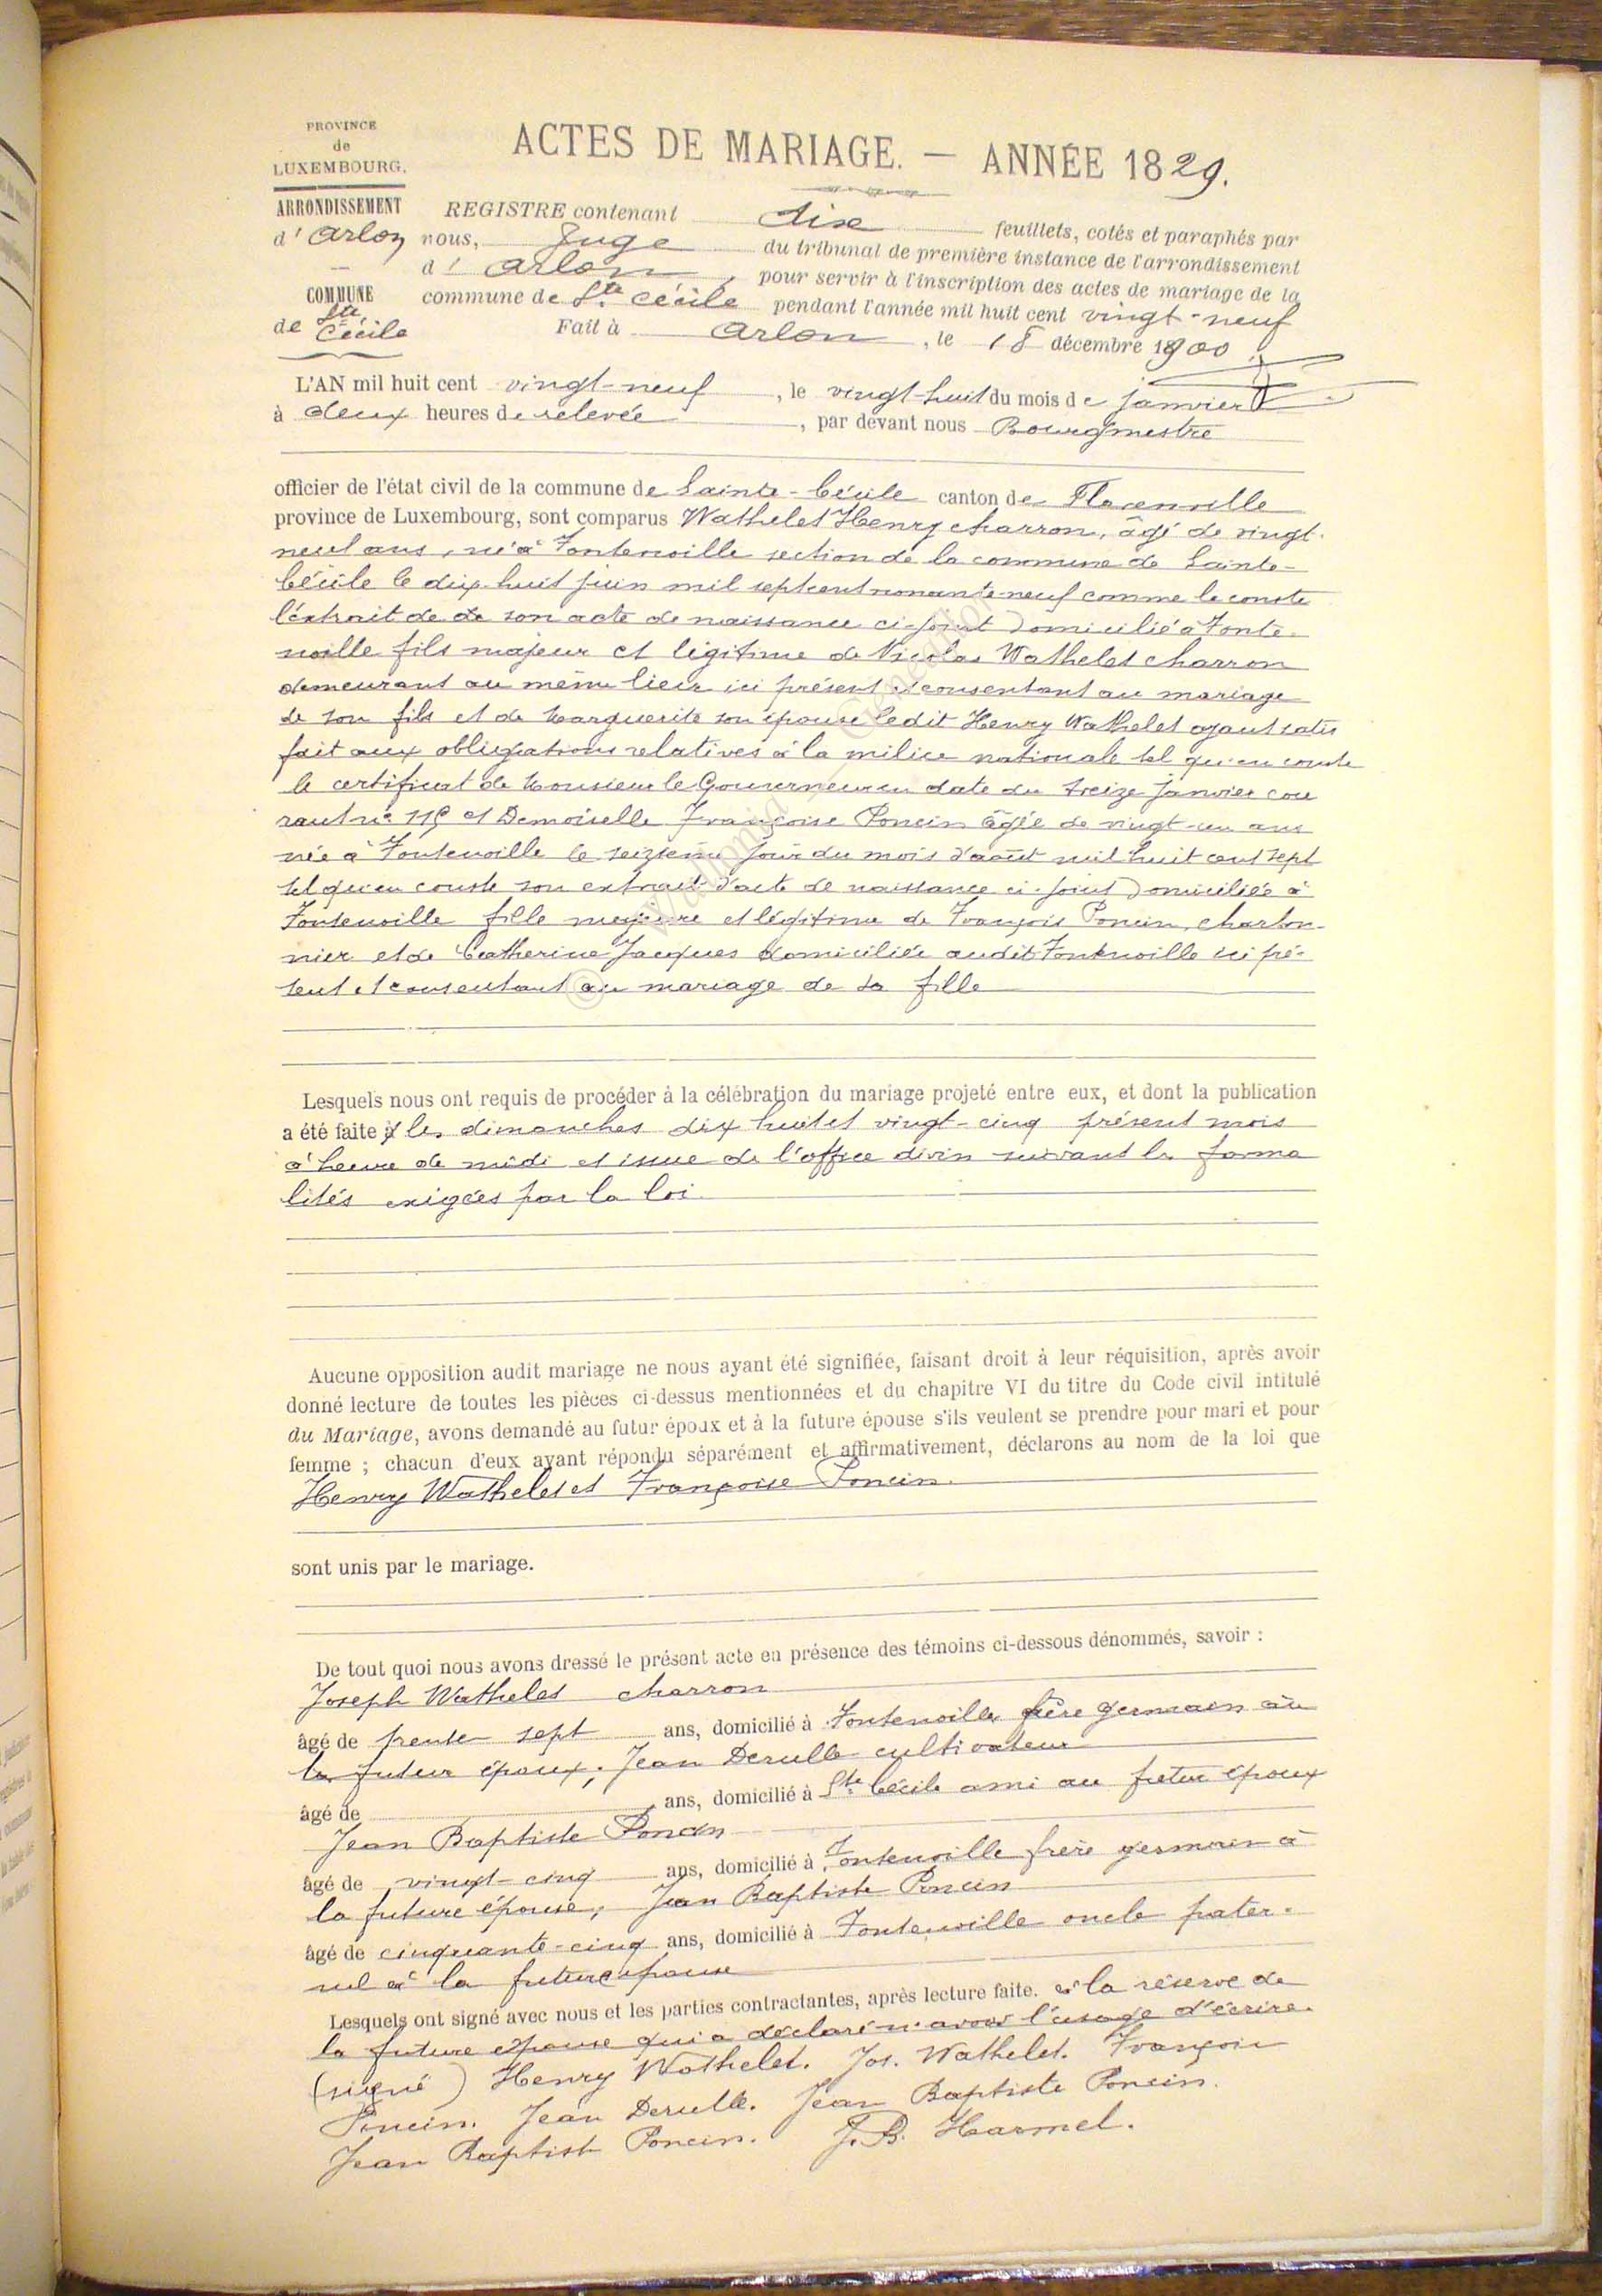 PROVINCE
de
LUXEMBOURG.
ARRONDISSEMENT
d'Arlon
COMMUNE
de Ste Cécile
ACTES DE MARIAGE. — ANNÉE 1829.
REGISTRE contenant dix feuillets, cotés et paraphés par
nous, Juge du tribunal de première instance de l'arrondissement
d'Arlon, pour servir à l'inscription des actes de mariage de la
commune de Ste Cécile pendant l'année mil huit cent vingt-neuf
Fait à Arlon, le 18 décembre 1900
L'AN mil huit cent vingt-neuf, le vingt-huit du mois de janvier
à deux heures de relevée, par devant nous Bourgmestre
officier de l'état civil de la commune de Sainte-Cécile canton de Florenville
province de Luxembourg, sont comparus Wathelet Henry charron, âgé de vingt-
neuf ans, né à Fontenoille section de la commune de Sainte-
Cécile le dix-huit juin mil sept cent nonante-neuf comme le conste
l'extrait de de son acte de naissance ci-joint Domicilié à Fonte-
noille fils majeur et légitime de Nicolas Wathelet charron
demeurant au même lieu ici présent et consentant au mariage
de son fils et de Marguerite son épouse ledit Henry Wathelet ayant satis
fait aux obligations relatives à la milice nationale tel qu'en conste
le certificat de Monsieur le Gouverneur en date du treize Janvier cou
rant n° 115 et Demoiselle Françoise Poncin âgée de vingt-un ans
née à Fontenoille le seizième jour du mois d'août mil huit cent sept
tel qu'en conste son extrait d'acte de naissance ci-joint Domiciliée à
Fontenoille fille majeure et légitime de François Poncin, charbon-
nier et de Catherine Jacques domiciliée audit Fontenoille ici pré-
sent et consentant au mariage de sa fille
© Wallonia
Lesquels nous ont requis de procéder à la célébration du mariage projeté entre eux, et dont la publication
a été faite à les dimanches dix huit et vingt-cinq présent mois
à heure de midi et issue de l'office divin suivant les forma
lités exigées par la loi
Aucune opposition audit mariage ne nous ayant été signifiée, faisant droit à leur réquisition, après avoir
donné lecture de toutes les pièces ci-dessus mentionnées et du chapitre VI du titre du Code civil intitulé
du Mariage, avons demandé au futur époux et à la future épouse s'ils veulent se prendre pour mari et pour
femme ; chacun d'eux ayant répondu séparément et affirmativement, déclarons au nom de la loi que
Henry Wathelet et Françoise Poncin.
sont unis par le mariage.
De tout quoi nous avons dressé le présent acte en présence des témoins ci-dessous dénommés, savoir :
Joseph Wathelet charron
âgé de trente sept ans, domicilié à Fontenoille frère germain au
le futur époux, Jean Derulle cultivateur
âgé de ans, domicilié à Ste Cécile ami au futur époux
Jean Baptiste Poncin
âgé de vingt-cinq ans, domicilié à Fontenoille frère germain à
la future épouse, Jean Baptiste Poncin
âgé de cinquante-cinq ans, domicilié à Fontenoille oncle pater-
nel à la future épouse
Lesquels ont signé avec nous et les parties contractantes, après lecture faite. à la réserve de
la future épouse qui a déclaré n'avoir l'usage d'écrire.
(signé) Henry Wathelet. Jos. Wathelet. François
Poncin. Jean Derulle. Jean Baptiste Poncin.
Jean Baptist Poncin. J. B. Harmel.